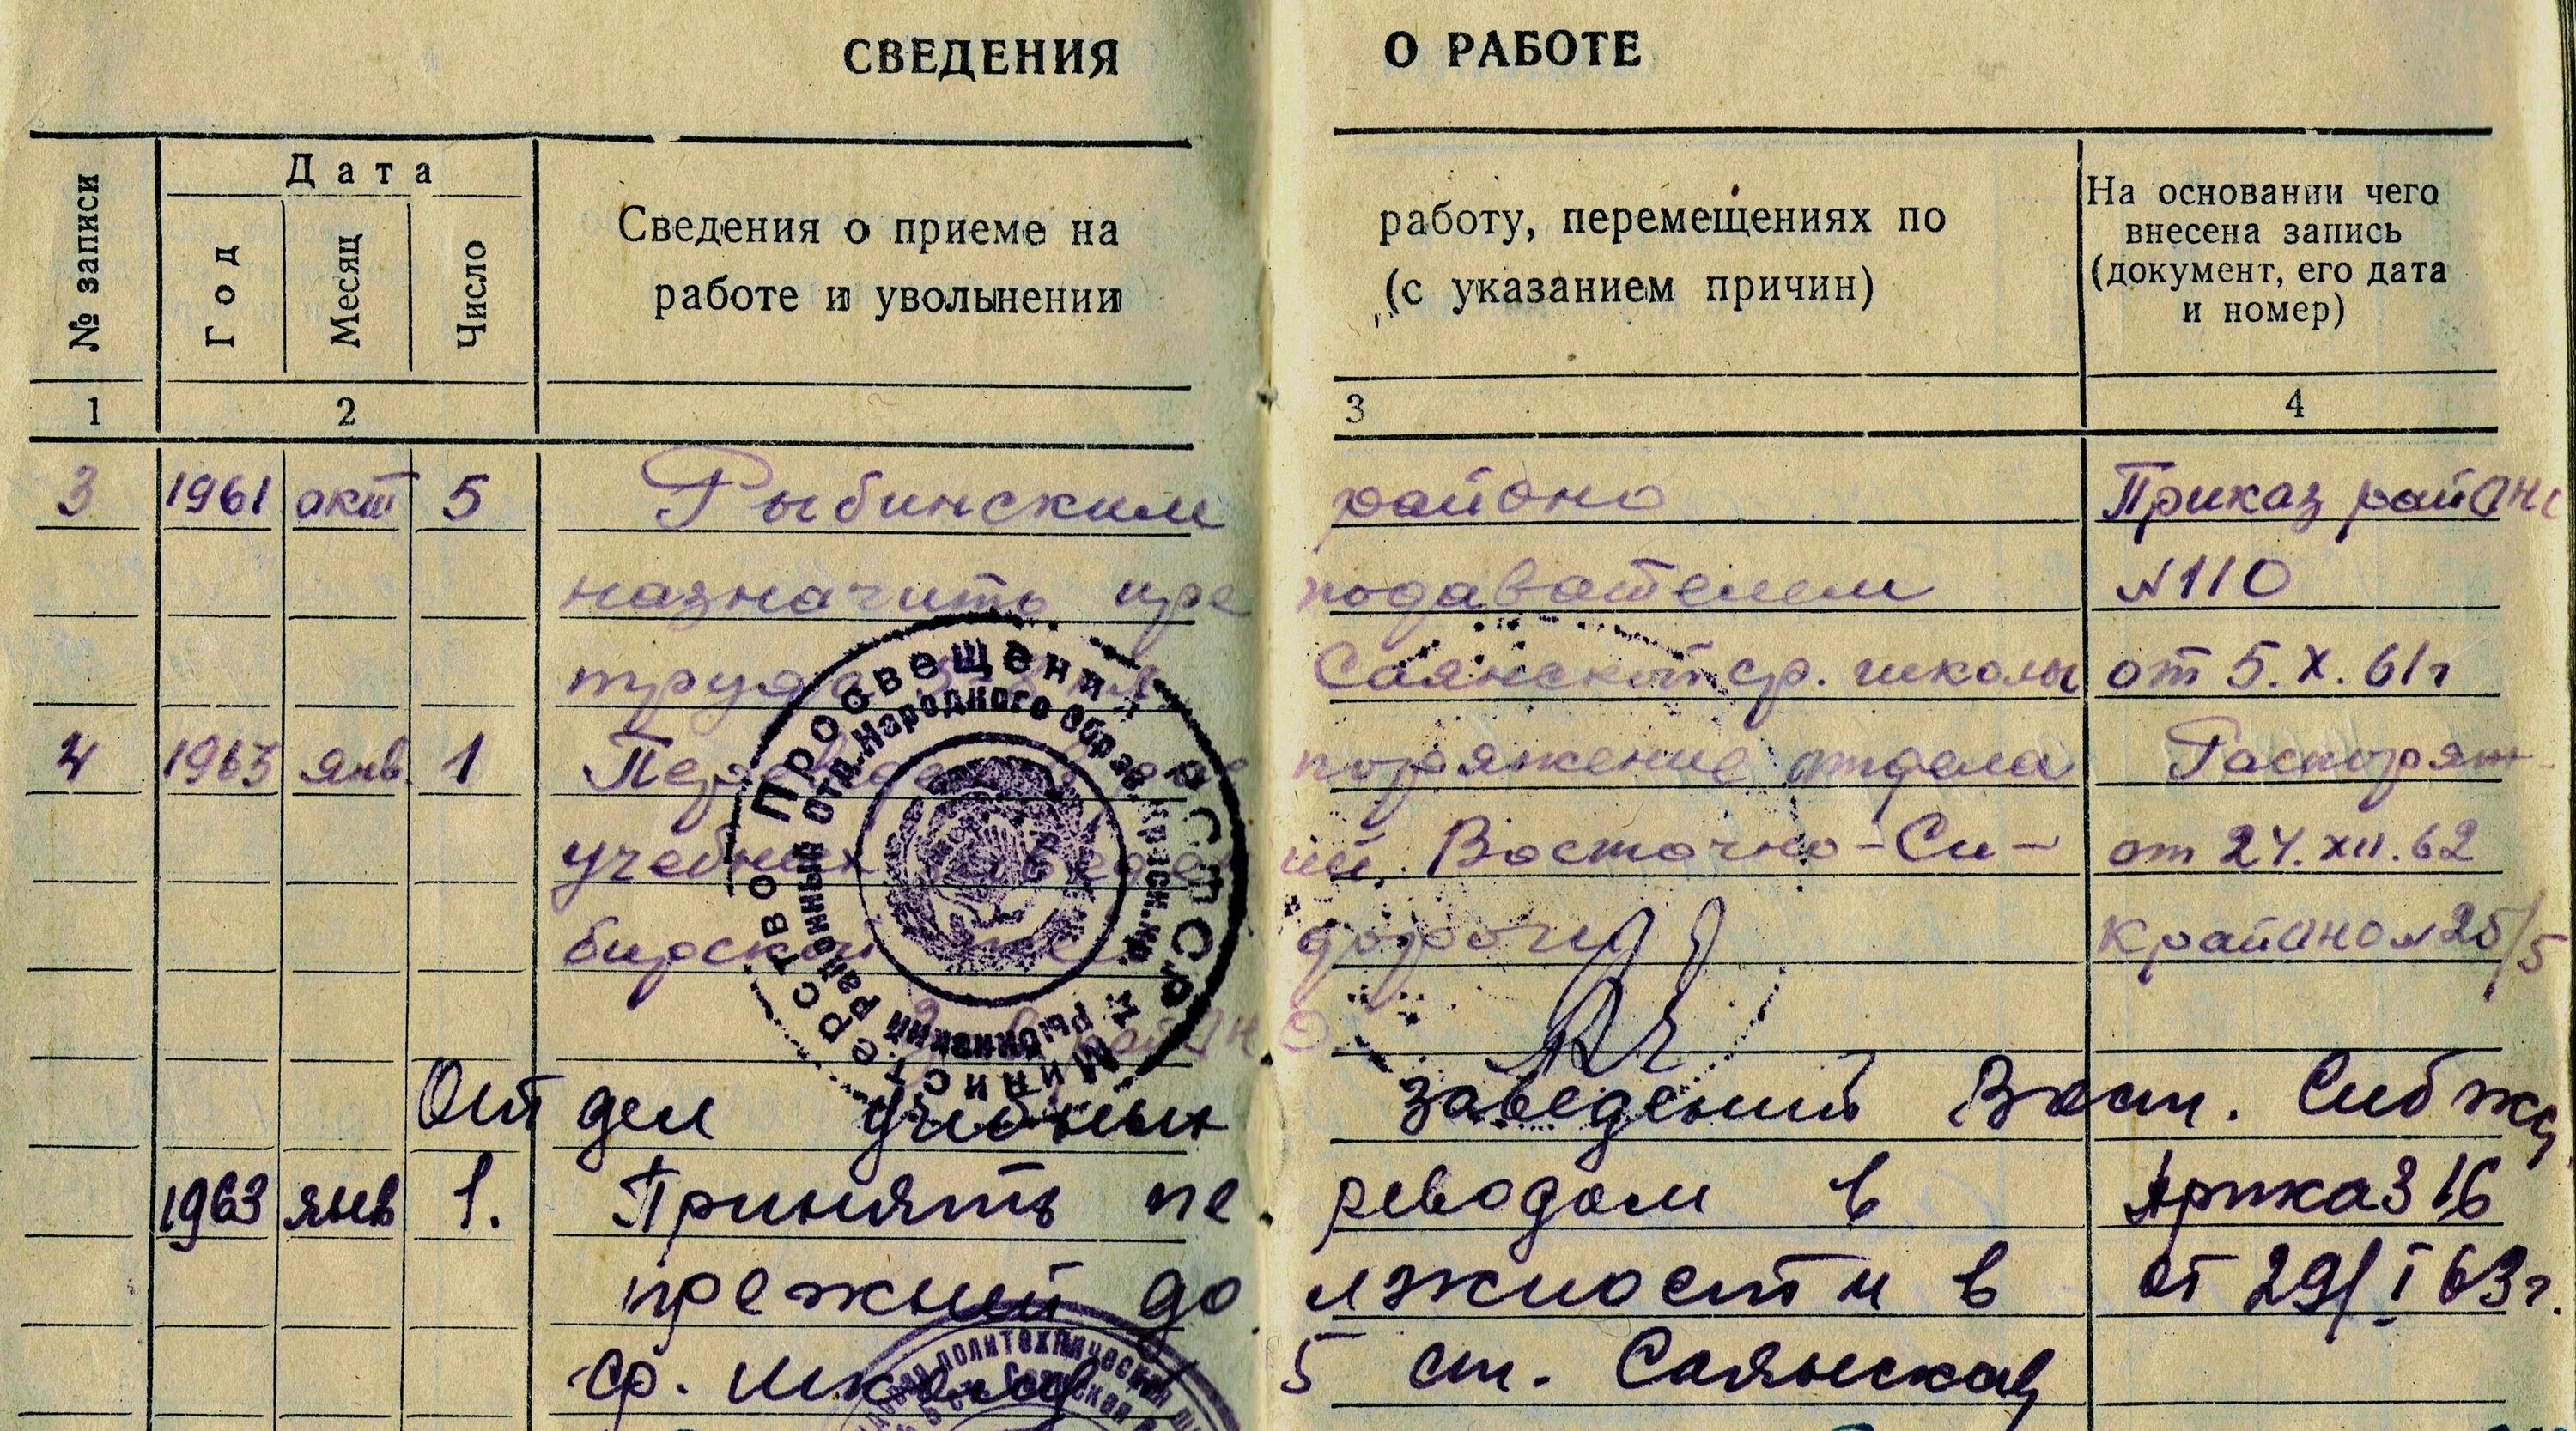 СВЕДЕНИЯ О РАБОТЕ
№ записи
Дата
Год
Месяц
Число
Сведения о приеме на работу, перемещениях по
работе и увольнении (с указанием причин)
На основании чего
внесена запись
(документ, его дата
и номер)
1 2 3 4
3 1961 окт 5 Рыбинским районо Приказ районо
назначить преподавателем №110
труда Саянской ср. школы от 5.X.61г
4 1963 янв. 1 Переведен в распоряжение отдела Распоряж-
учебных заведений, Восточно-Си- от 24.XII.62
бирской жел дороги Крайано №25/5
Отдел учебных заведений Вост. Сиб жд
1963 янв 1. Принять переводом в Приказ 16
прежней должности в от 29/I 63г.
ср. школу 5 ст. Саянская
Министерство Просвещения РСФСР
Рыбинский районный отд. Народного образ. Красн. кр.
политехническая